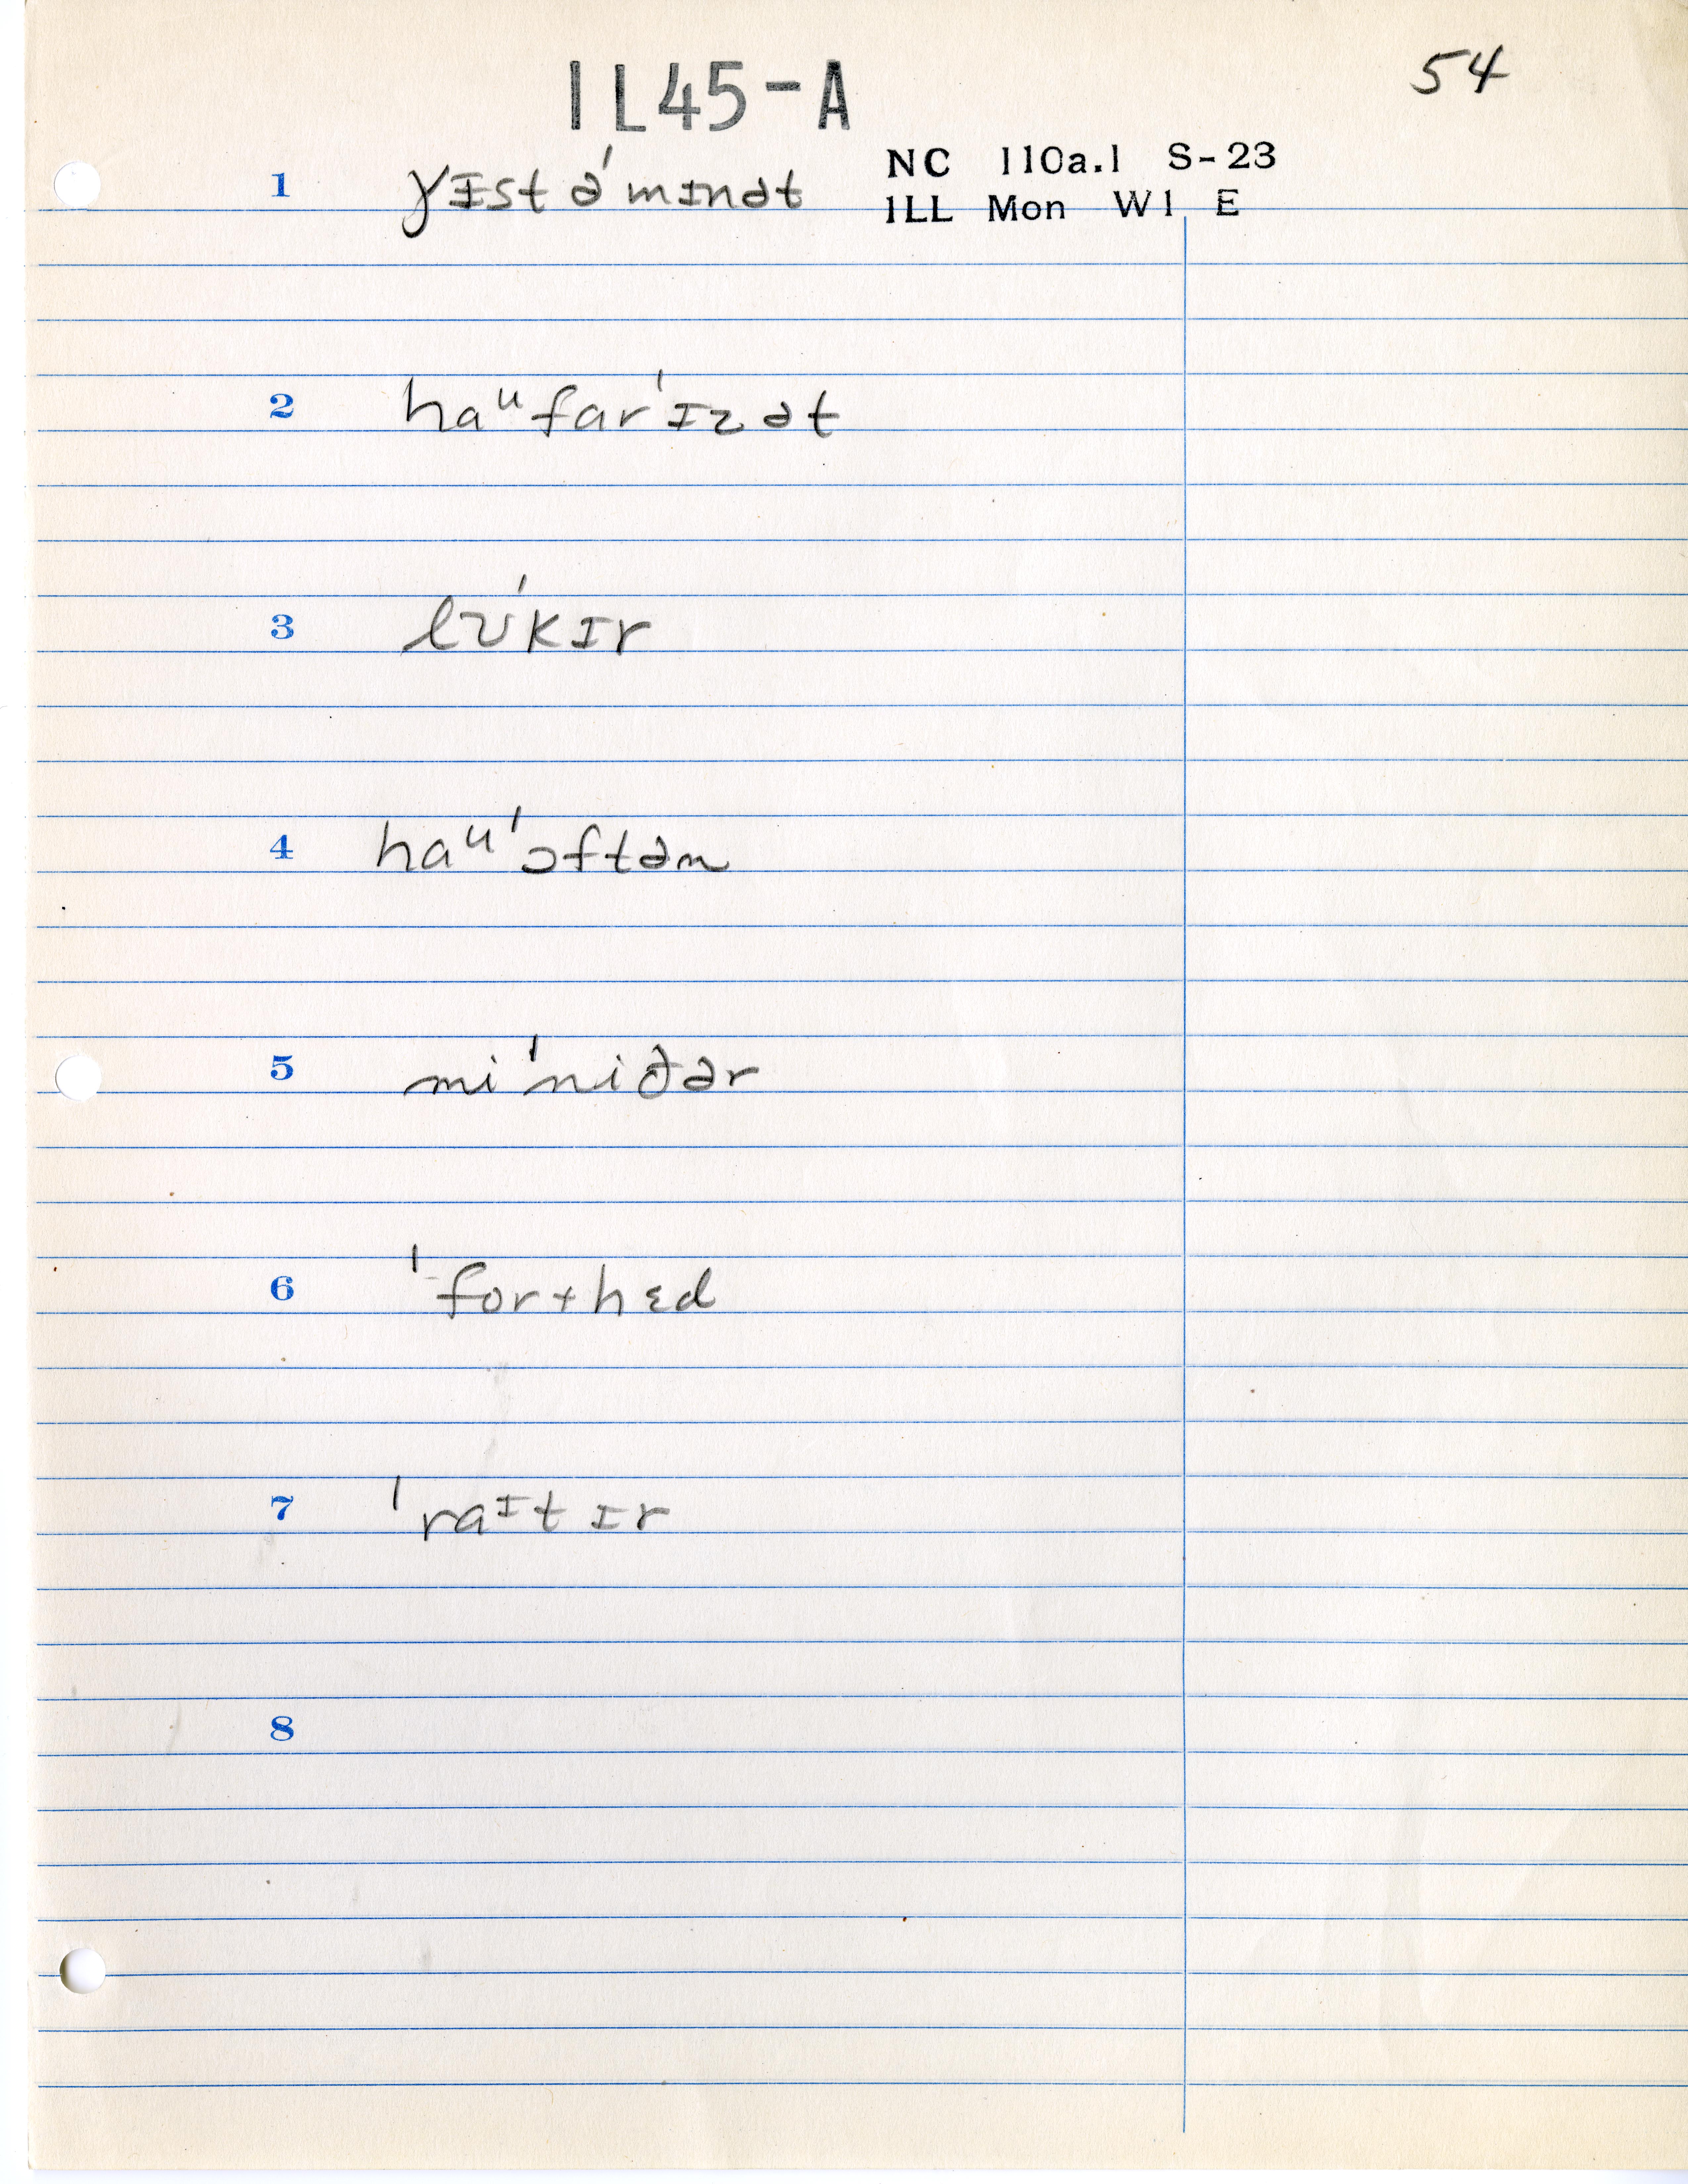 54
IL45-A
NC 110a.1 S-23
ILL Mon W1 E
1 ɣɪst ə'mɪnət
2 haᵘfar'ɪzət
3 lʊ'kɪr
4 haᵘ'ɔftən
5 mi'niðər
6 'for+hɛd
7 'raᶦtɪr
8